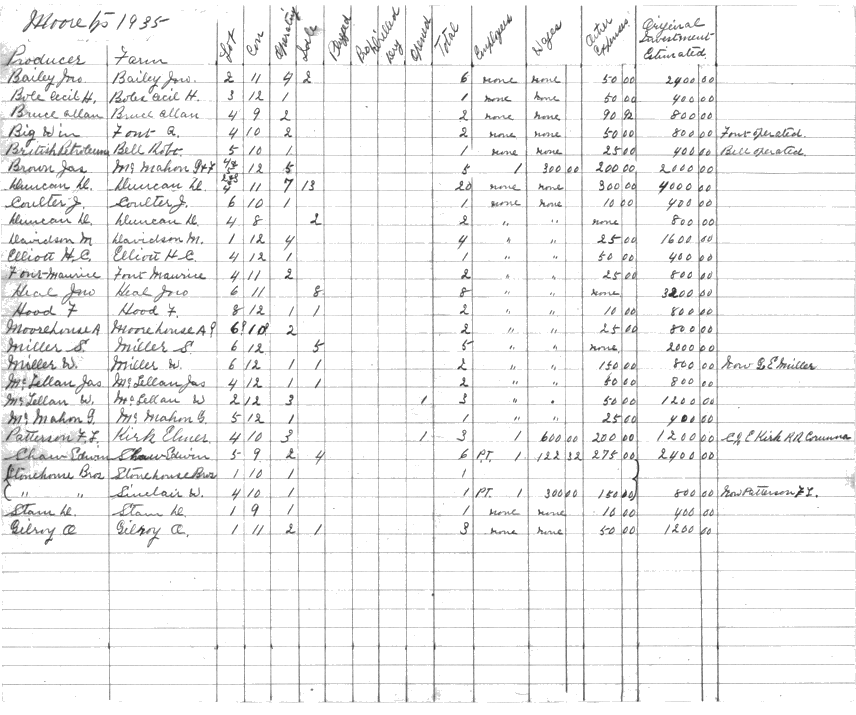 Moore tp 1935
Producer Farm Lot Con Operating Idle Bopped Drilled Dry Opened Total Employees Wages Other Expenses Original Investment Estimated
Bailey Jno. Bailey Jno. 2 11 4 2 6 none none 50 00 2400 00
Bole Cecil H. Bole Cecil H. 3 12 1 1 none none 50 00 400 00
Bruce Allan Bruce Allan 4 9 2 2 none none 90 92 800 00
Big Win Font A. 4 10 2 2 none none 50 00 800 00 Font operated.
British Petroleum Bell Robt. 5 10 1 1 none none 25 00 400 00 Bell operated.
Brown Jas Mc Mahon 12 5 5 1 300 00 200 00 2000 00
Duncan D. Duncan D. 11 7 13 20 none none 300 00 4000 00
Coulter J. Coulter J. 6 10 1 1 none none 10 00 400 00
Duncan D. Duncan D. 4 8 2 2 " " none 800 00
Davidson M Davidson M. 1 12 4 4 " " 25 00 1600 00
Elliott H.C. Elliott H.C. 4 12 1 1 " " 50 00 400 00
Font Maurice Font Maurice 4 11 2 2 " " 25 00 800 00
Heal Jno Heal Jno 6 11 8 8 " " none 3200 00
Hood F. Hood F. 8 12 1 1 2 " " 10 00 800 00
Moorehouse A Moorehouse A 6 10 2 2 " " 25 00 800 00
Miller S. Miller S. 6 12 5 5 " " none 2000 00
Miller W. Miller W. 6 12 1 1 2 " " 150 00 800 00 Now G E Miller
Mc Lellan Jas Mc Lellan Jas 4 12 1 1 2 " " 50 00 800 00
Mc Lellan W. Mc Lellan W. 2 12 3 1 3 " " 50 00 1200 00
Mc Mahon G. Mc Mahon G. 5 12 1 1 " " 25 00 400 00
Patterson F.L. Kirk Elmer. 4 10 3 1 3 1 600 00 200 00 1200 00 E Kirk RR Corunna
Shaw Edwin Shaw Edwin 5 9 2 4 6 PT. 1 122 32 275 00 2400 00
Stonehouse Bros Stonehouse Bros 1 10 1 1
" " Sinclair W. 4 10 1 1 PT. 1 300 00 150 00 800 00 Now Patterson F.L.
Stam D. Stam D. 1 9 1 1 none none 10 00 400 00
Gilroy O Gilroy O. 1 11 2 1 3 none none 50 00 1200 00